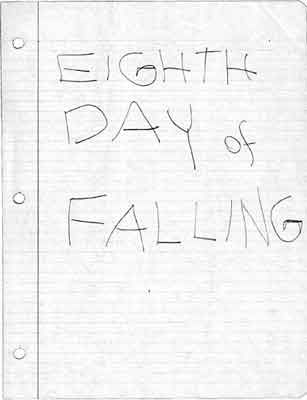 EIGHTH
DAY of
FALLING